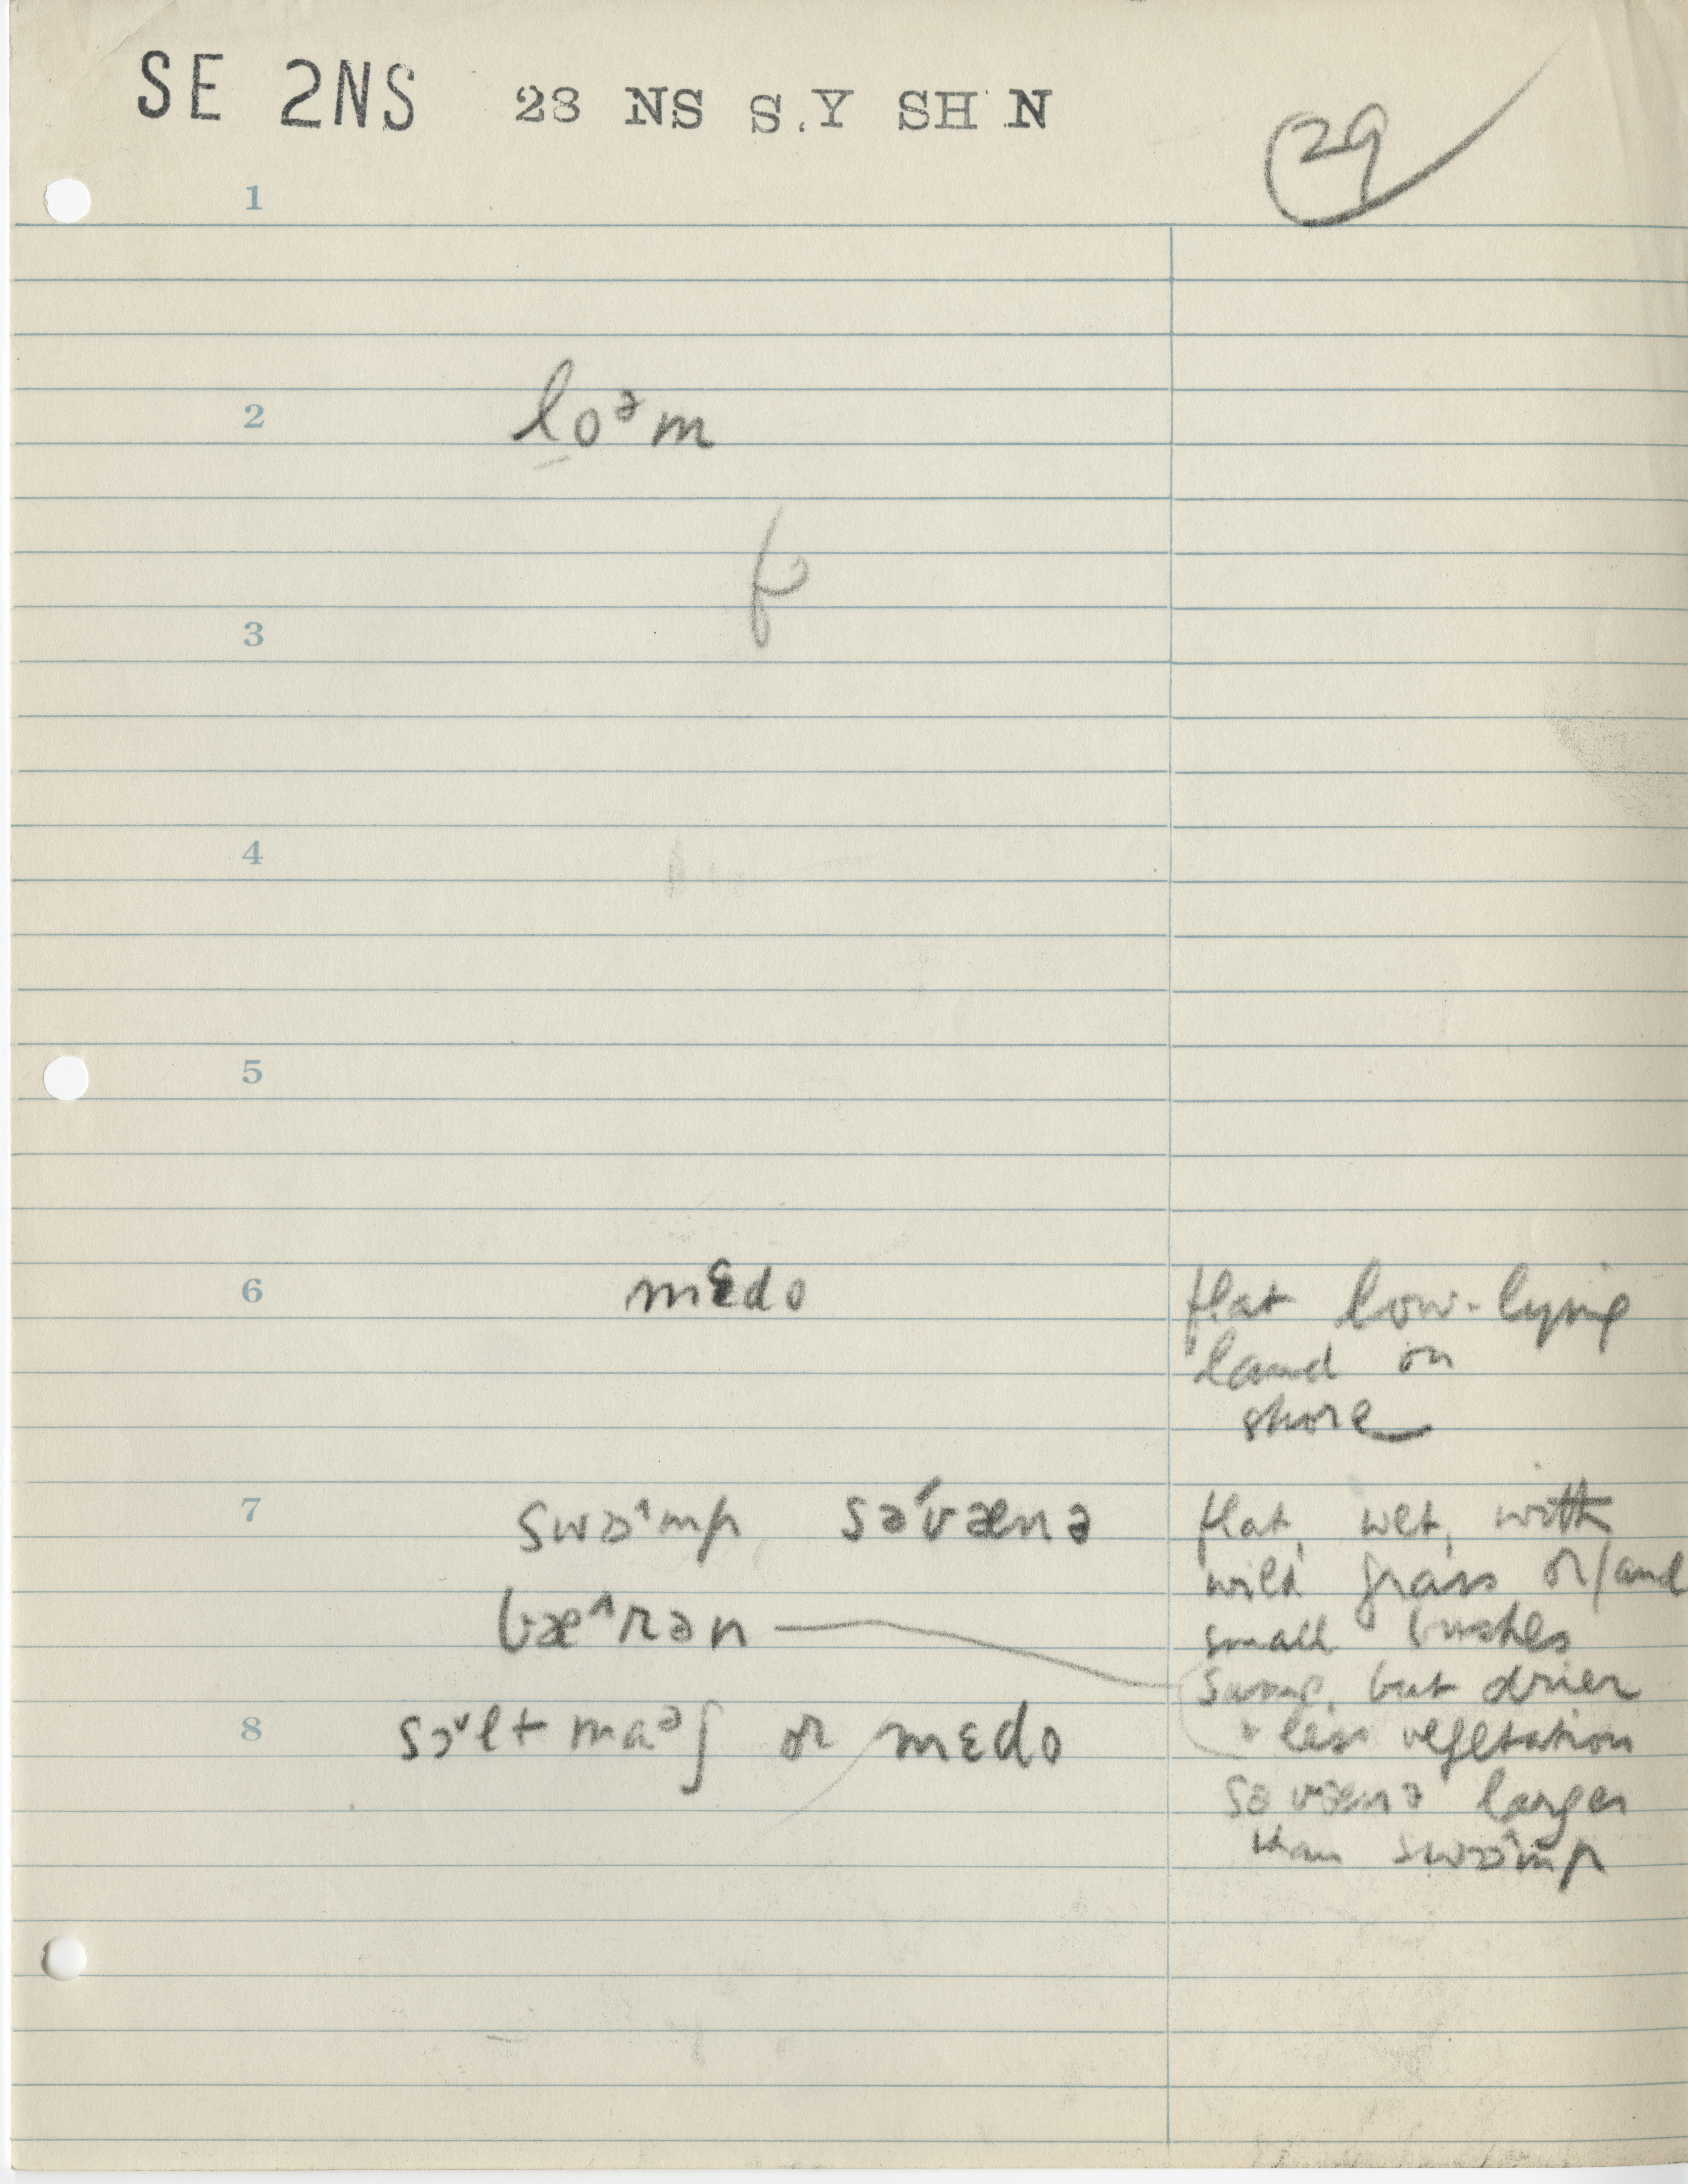 SE 2NS 28 NS S.Y SH N
29
1
2 loᵊm
3
4
5
6 mɛdo flat low-lying
land on
shore
7 swɒˆmp, səˈvænə flat, wet, with
wild grass or/and
bæˆrən small bushes
swamp, but drier
8 sɔˇlt maᵊʃ or mɛdo & less vegetation
səvænə larger
than swɒˆmp